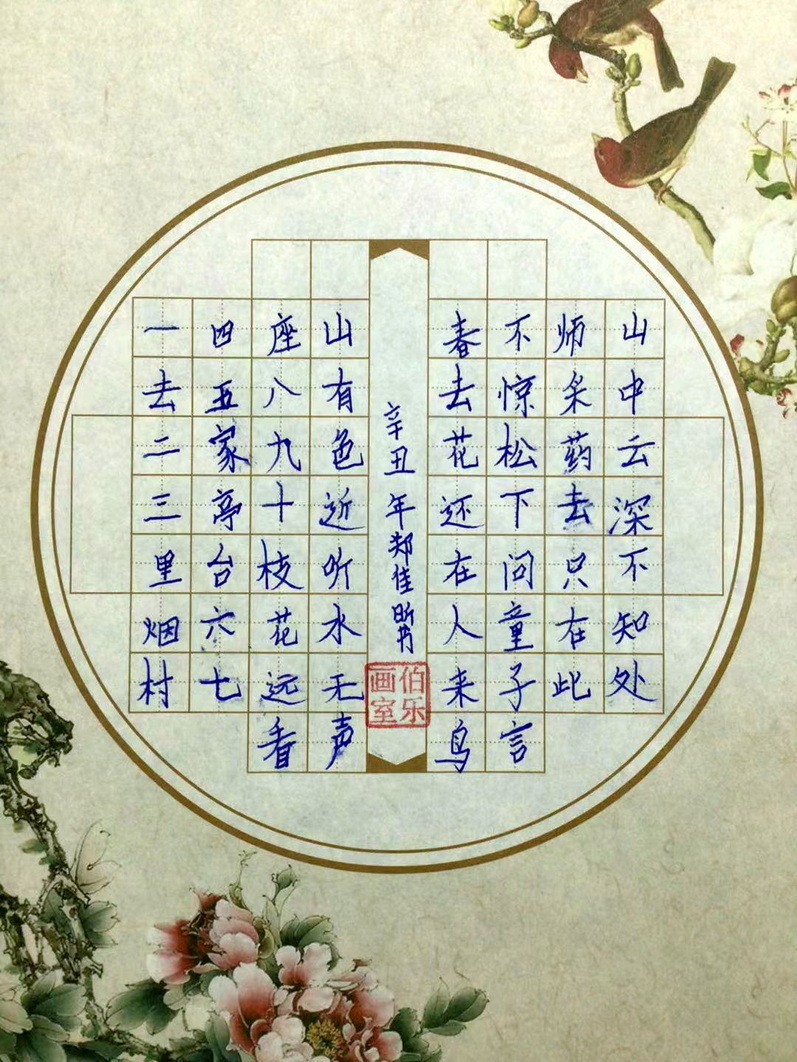 一去二三里烟村
四五家亭台六七
座八九十枝花远看
山有色近听水无声
春去花还在人来鸟
不惊松下问童子言
师采药去只在此
山中云深不知处
辛丑年郑佳昕书
伯乐画室